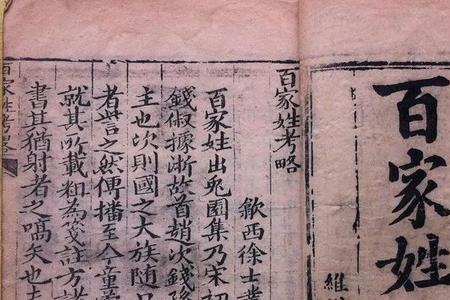 百家姓
維
百家姓考略
歙西徐士業
百家姓出兎園集乃宋初
錢俶據浙故首趙次錢孫
主也次則國之大族随口
者言之然傳播至今童
就其所載粗為箋註方諸
書其猶射者之嚆矢也
百家姓考畧